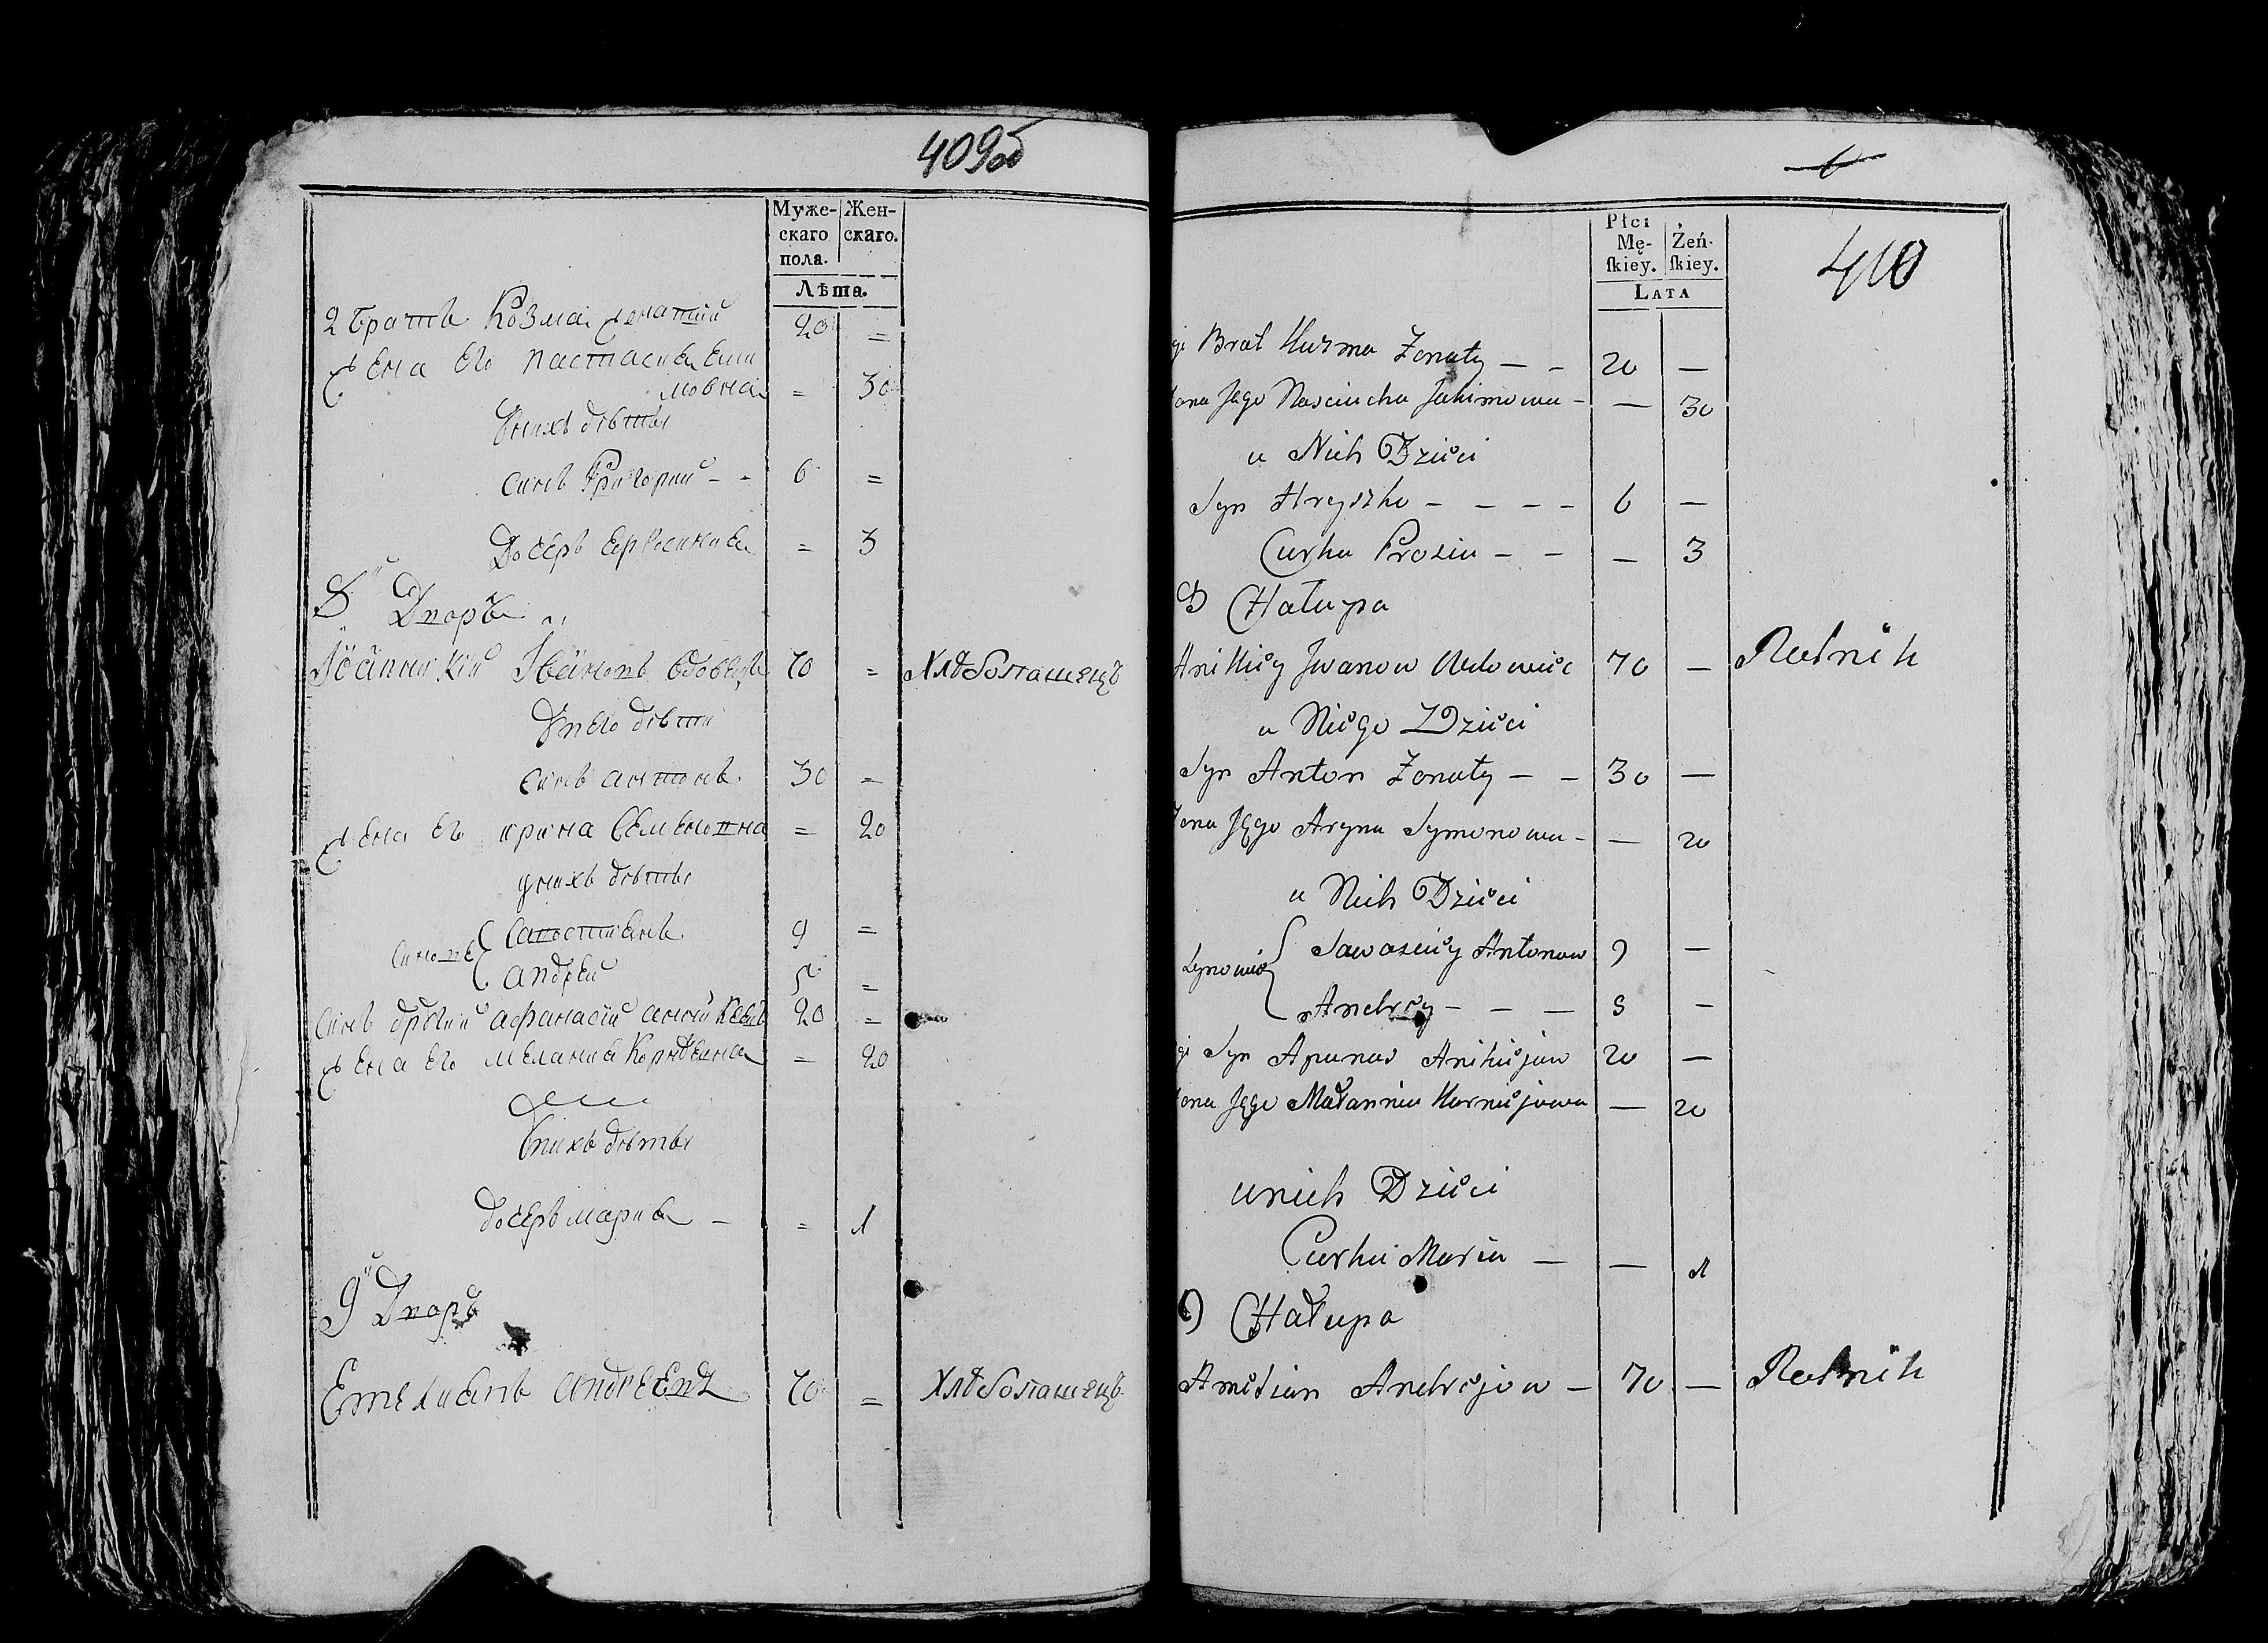 409об
Муже-
скаго
пола.
Жен-
скаго.
Лѣта.
2 братъ Козма женатий 20 =
жена его настасия Еки
мовна = 30
Унихъ дѣты
синъ Григорий - - 6 =
Дочеръ евросиния = 3
8й Дворъ
Иоанникий Ивановъ вдовецъ 70 = Хлѣбопашецъ
Унего дѣти
синъ антонъ 30 =
жена его ирина Семеновна = 20
унихъ дѣты
синовѣ савостиянъ 9 =
андрей 5 =
синъ другий афанасий аникиевъ 20 =
жена его мелания Корнѣевна = 20
Унихъ дѣты
дочеръ мария - = 1
9й Дворъ
Емелиянъ андреевъ 70 = Хлѣбопашецъ
6
410
Płci
Mę-
ſkiey.
Żeń-
ſkiey.
LATA
gi Brat Kuzma Żonaty — — 20 —
żona Jego Nasciucha Jakimowa - — 30
u Nich Dzieci
Syn Hryszko — — — — 6 —
Curka Prosia — — — 3
8 Chałupa
Anikiey Jwanow Wdowiec 70 — Rolnik
u Niego Dzieci
Syn Anton Żonaty — — 30 —
żona Jego Aryna Symonowa - — 20
u Nich Dzieci
Synowie Sawasciey Antonow 9 —
Andrey — — — 5 —
gi Syn Apanas Anikiejow 20 —
żona Jego Małannia Karniejowa — 20
unich Dzieci
Curka Maria — — 1
9 Chałupa
Amelian Andrejow — 70 — Rolnik